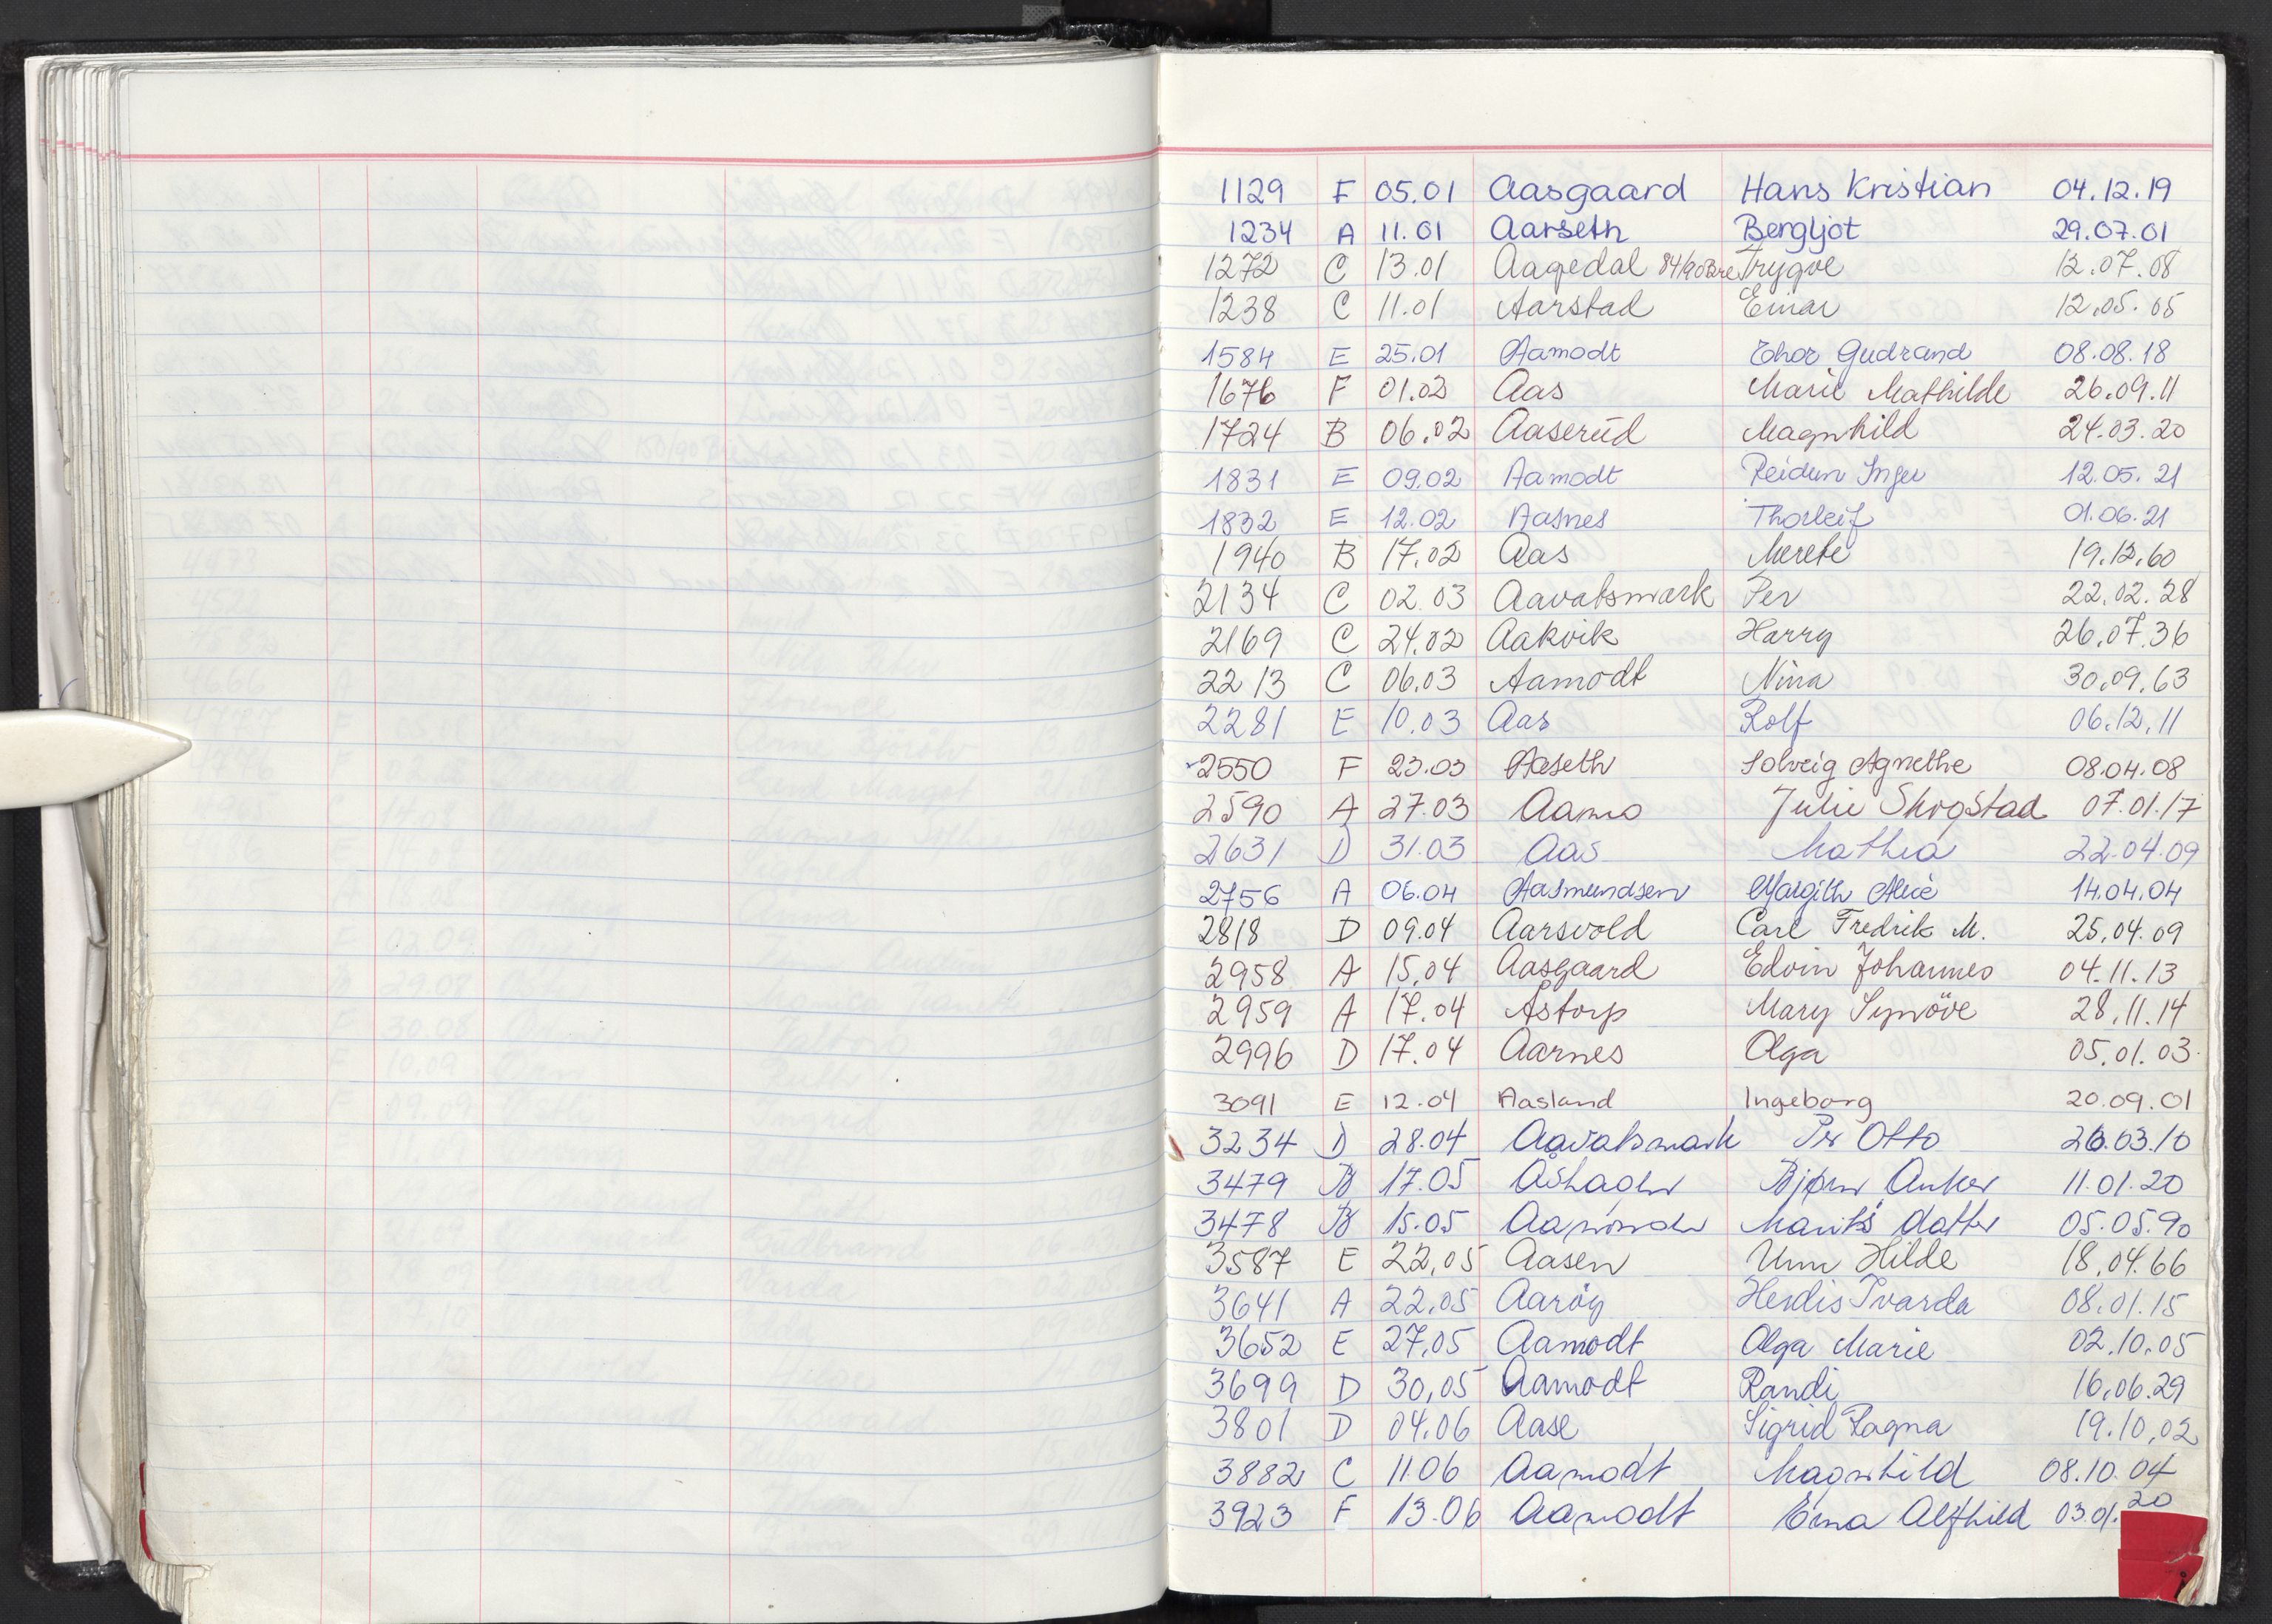 1129 F 05.01 Aasgaard Hans Kristian 04.12.19
1234 A 11.01 Aarseth Bergljot 29.07.01
1272 C 13.01 Aagedal 84/90 Bre Trygve 12.07.08
1238 C 11.01 Aarstad Einar 12.05.05
1584 E 25.01 Aamodt Thor Gudrand 08.08.18
1676 F 01.02 Aas Marie Mathilde 26.09.11
1724 B 06.02 Aaserud Magnhild 24.03.20
1831 E 09.02 Aamodt Reidun Inger 12.05.21
1832 E 12.02 Aasnes Thorleif 01.06.21
1940 B 17.02 Aas Merete 19.12.60
2134 C 02.03 Aavatsmark Per 22.02.28
2169 C 24.02 Aakvik Harry 26.07.36
2213 C 06.03 Aamodt Nina 30.09.63
2281 E 10.03 Aas Rolf 06.12.11
2550 F 23.03 Aaseth Solveig Agnethe 08.04.08
2590 A 27.03 Aamo Julie Skogstad 07.01.17
2631 D 31.03 Aas Mathea 22.04.09
2756 A 06.04 Aasmundsen Margith Alice 14.04.04
2818 D 09.04 Aarsvold Carl Fredrik M. 25.04.09
2958 A 15.04 Aasgaard Edvin Johannes 04.11.13
2959 A 17.04 Åstorp Mary Synöve 28.11.14
2996 D 17.04 Aarnes Olga 05.01.03
3091 E 12.04 Aasland Ingeborg 20.09.01
3234 D 28.04 Aavatsmark Per Otto 26.03.10
3479 B 17.05 Åshagen Bjørn Anker 11.01.20
3478 B 15.05 Marits datter 05.05.90
3587 E 22.05 Aasen Unn Hilde 18.04.66
3641 A 22.05 Aarøy Herdis Ivarda 08.01.15
3652 E 27.05 Aamodt Olga Marie 02.10.05
3699 D 30.05 Aamodt Randi 16.06.29
3801 D 04.06 Aase Sigrid Ragna 19.10.02
3882 C 11.06 Aamodt Magnhild 08.10.04
3923 F 13.06 Aamodt Erna Alfhild 03.01.20